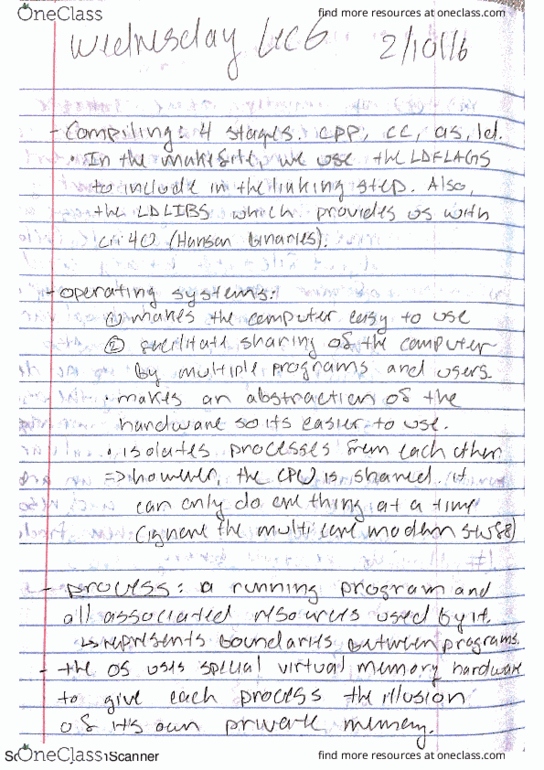 OneClass
find more resources at oneclass.com
Wednesday Lec 6 2/10/16
- Compiling: 4 stages. cpp, cc, as, ld.
• In the makefile, we use the LDFLAGS
to include in the linking step. Also,
the LDLIBS which provides us with
cii40 (Hanson binaries).
- operating systems:
① makes the computer easy to use
② facilitate sharing of the computer
by multiple programs and users
• makes an abstraction of the
hardware so its easier to use.
• isolates processes from each other
=> however, the CPU is shared. it
can only do one thing at a time
(ignore the multi core modern stuff)
- process: a running program and
all associated resources used by it.
↳ represents boundaries between programs.
- the OS uses special virtual memory hardware
to give each process the illusion
of its own private memory.
OneClass Scanner
find more resources at oneclass.com